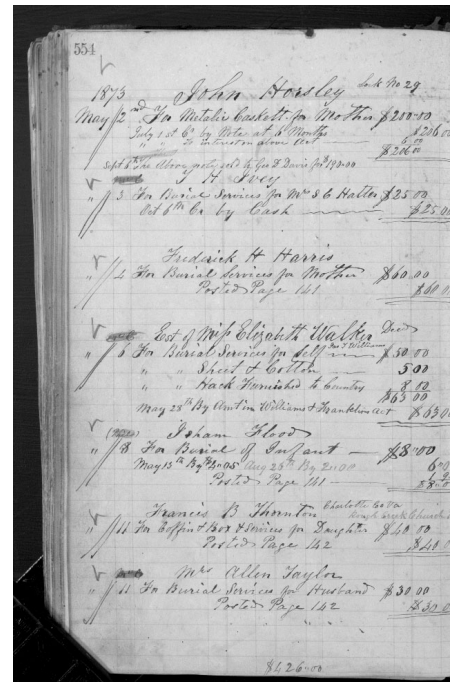 554
1873 John Horsley Lock No 29
May 2nd For Metalic Caskett for Mother $200.00
July 1st Cr by Note at 6 Months $206.00
" " To interest on above Act 6.00
$206.00
Sept 8th The Above note sold to Geo T Davis for 190.00
T H Ivey
" 3 For Burial Services for Mrs S C Hatten $25.00
Oct 6th Cr by Cash $25.00
Frederick H Harris
" 4 For Burial Services for Mother $60.00
Posted Page 141 $60.00
Est of Miss Elizabeth Walker Decd
" 6 For Burial Services for Self $50.00
" " Sheet & Cotton 5 00
" " Hack Furnished to Country 8 00
$63 00
May 28th By Amt in Williams & Franklins Act $63 00
Isham Flood
" 8 For Burial of Infant $8.00
May 13th By Aug 25th By 2.00
Posted Page 141
Francis B Thornton Charlotte Co Va
Rough Creek Church
" 11 For Coffin & Box & Services for Daughter $40 00
Posted Page 142 $40
Mrs Allen Taylor
" 11 For Burial Services for Husband $30 00
Posted Page 142 $30.0
$426.00